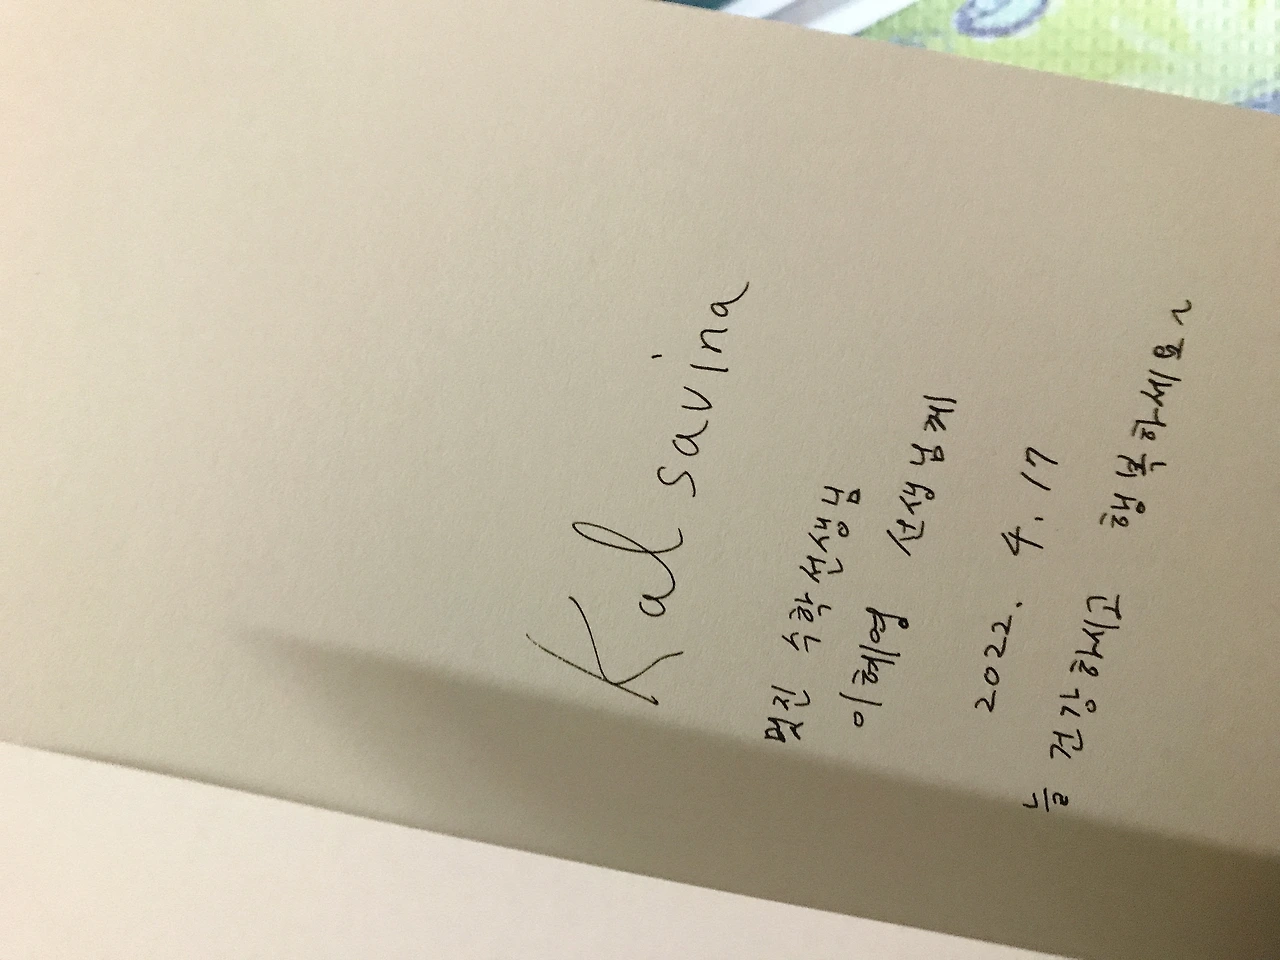 Kalsavina
멋진 수학선생님
이혜영 선생님께
2022. 4. 17
늘 건강하시고 행복하세요~